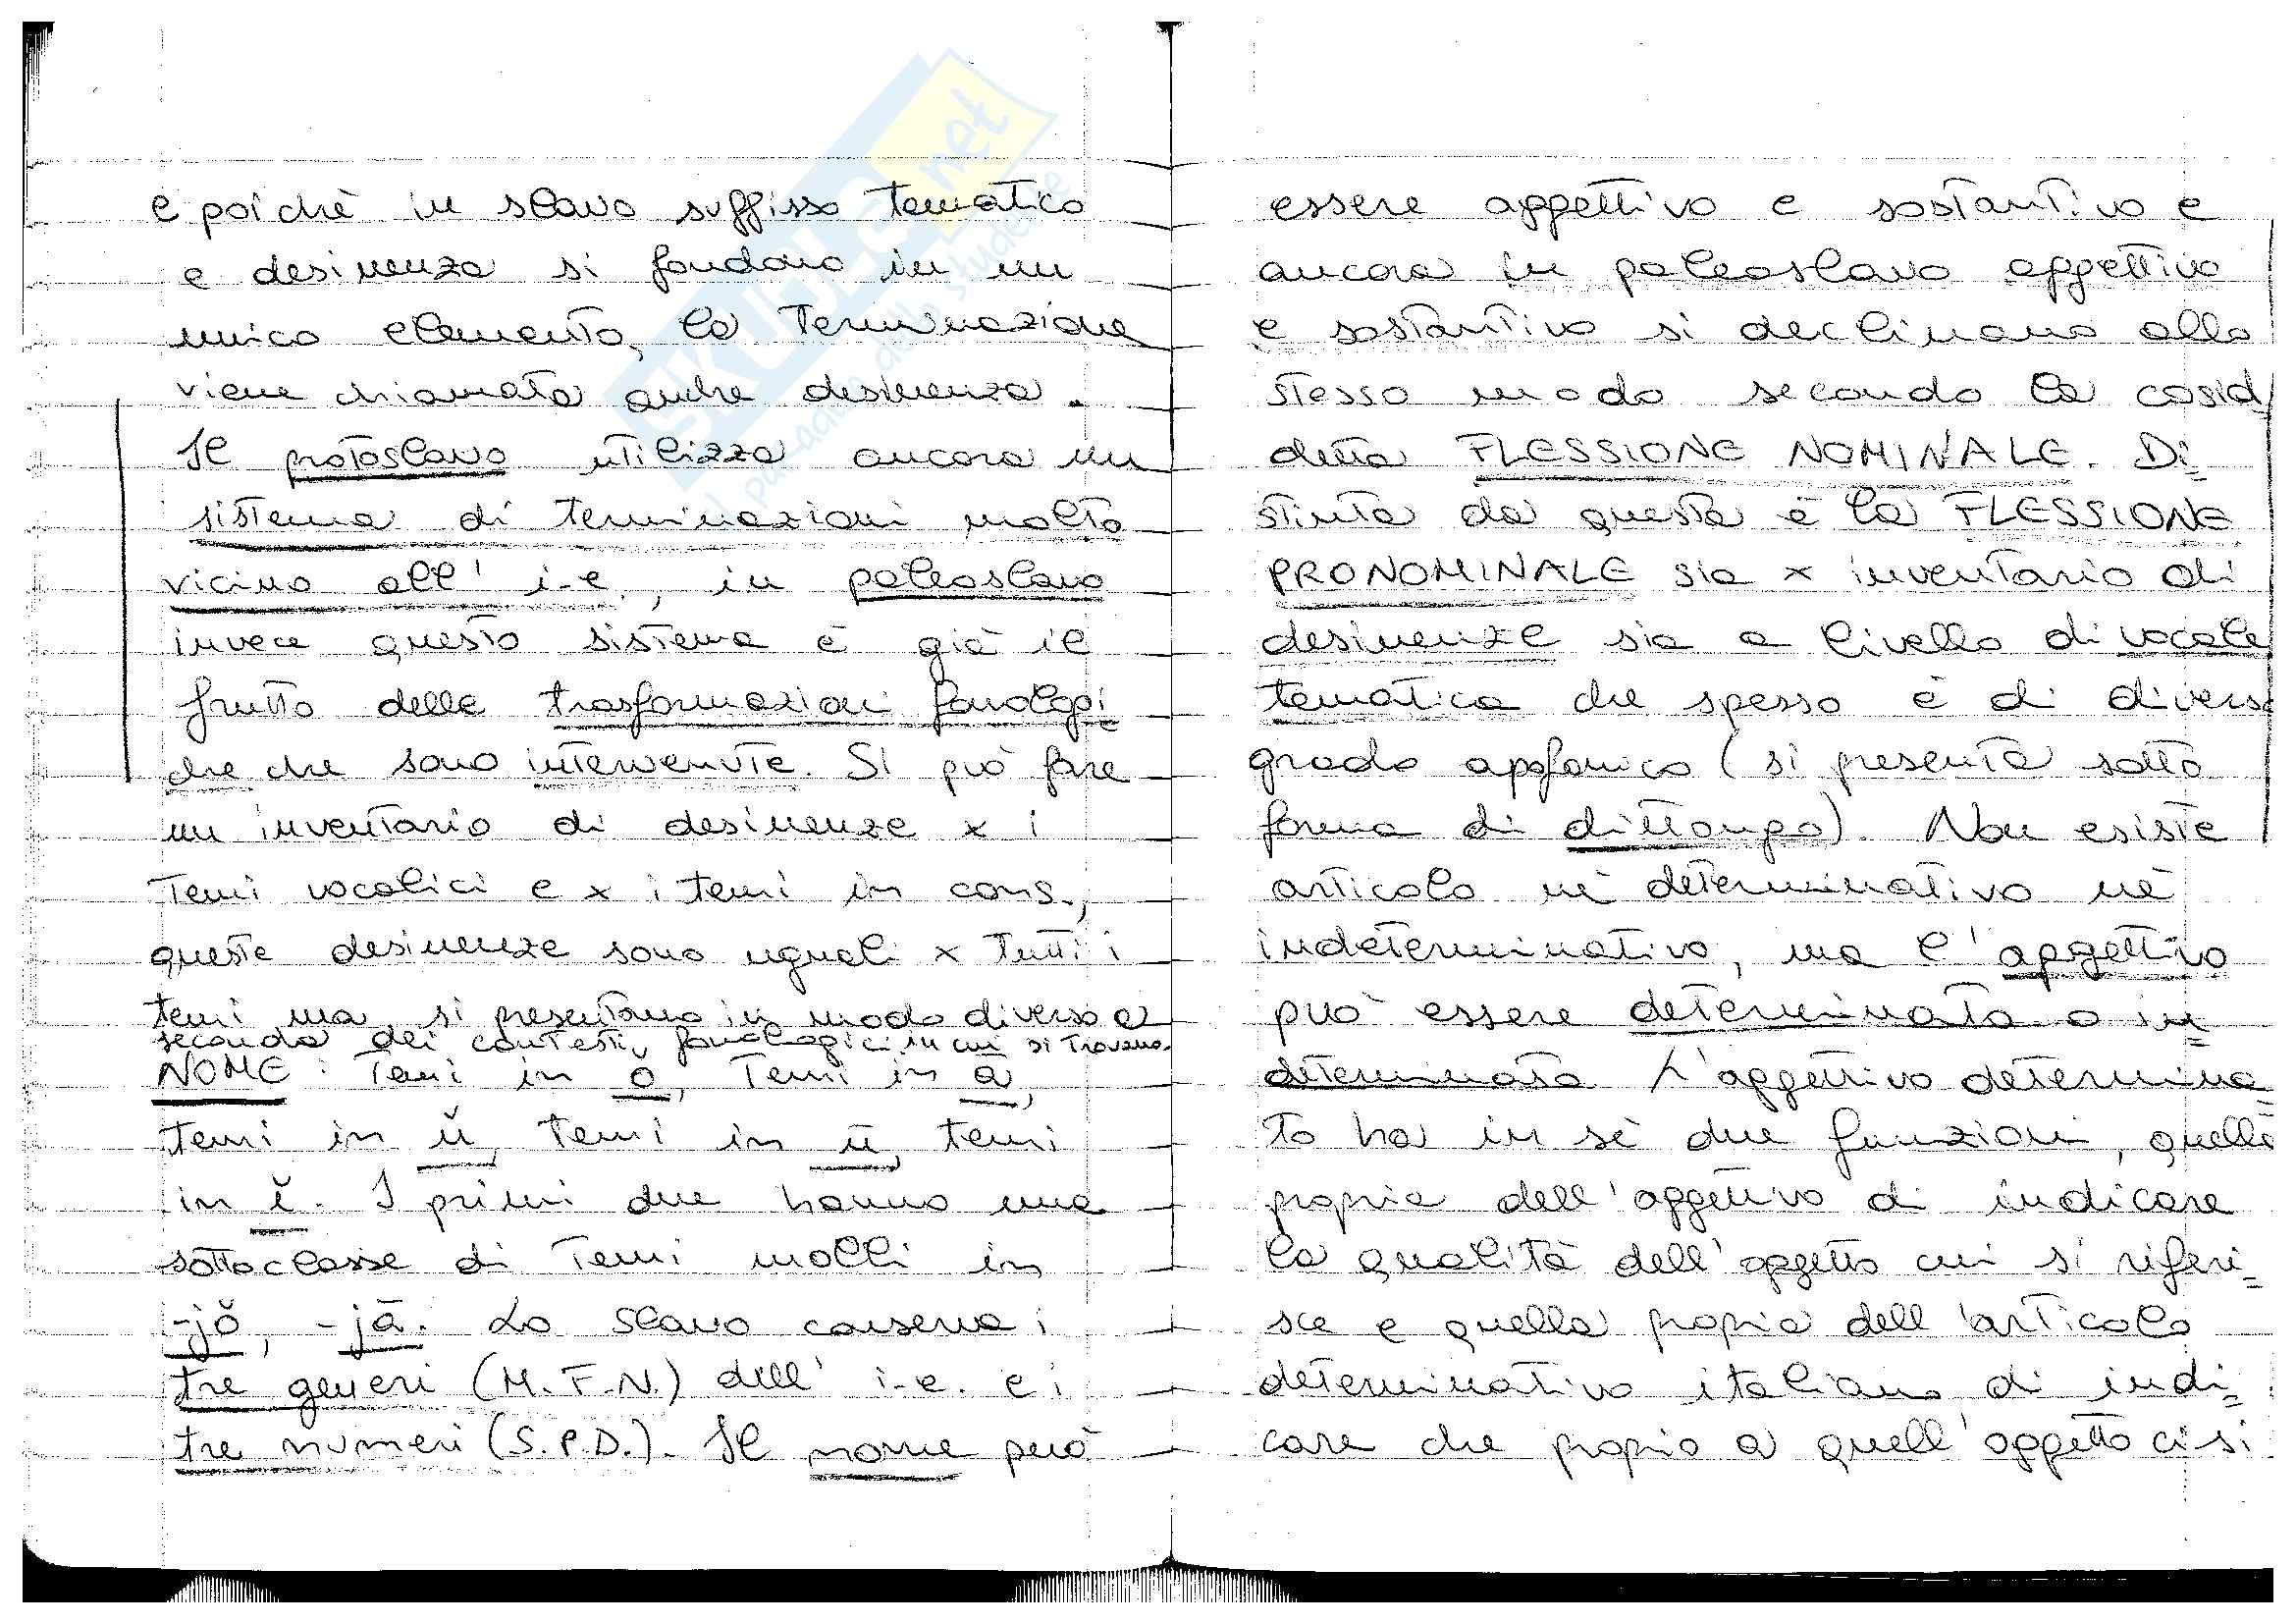 e poichè in slavo suffisso tematico
e desinenza si fondono in un
unico elemento, la terminazione
viene chiamata anche desinenza.
Il protoslavo utilizza ancora un
sistema di terminazioni molto
vicino all' i-e., in paleoslavo
invece questo sistema è già il
frutto delle trasformazioni fonologi
che che sono intervenute. Si può fare
un inventario di desinenze x i
temi vocalici e x i temi in cons.,
queste desinenze sono uguali x tutti i
temi ma si presentano in modo diverso a
seconda dei contesti fonologici in cui si trovano.
NOME: Temi in ŏ, Temi in ā,
temi in ŭ, temi in ū, temi
in ĭ. I primi due hanno una
sottoclasse di temi molli in
-jŏ, -jā. Lo slavo conserva i
tre generi (M.F.N.) dell' i-e. e i
tre numeri (S.P.D.). Il nome può
essere aggettivo e sostantivo e
ancora in paleoslavo aggettivo
e sostantivo si declinano allo
stesso modo secondo la cosid
detta FLESSIONE NOMINALE. Di=
stinta da questa è la FLESSIONE
PRONOMINALE sia x inventario di
desinenze sia a livello di vocale
tematica che spesso è di diverso
grado apofonico (si presenta sotto
forma di dittongo). Non esiste
articolo nè determinativo nè
indeterminativo, ma l'aggettivo
può essere determinato o in=
determinato L'aggettivo determina=
to ha in sè due funzioni, quella
propria dell'aggettivo di indicare
la qualità dell'oggetto cui si riferi=
sce e quella propria dell'articolo
determinativo italiano di indi=
care che proprio a quell'oggetto ci si
SKUOLA.net
il paradiso dello studente